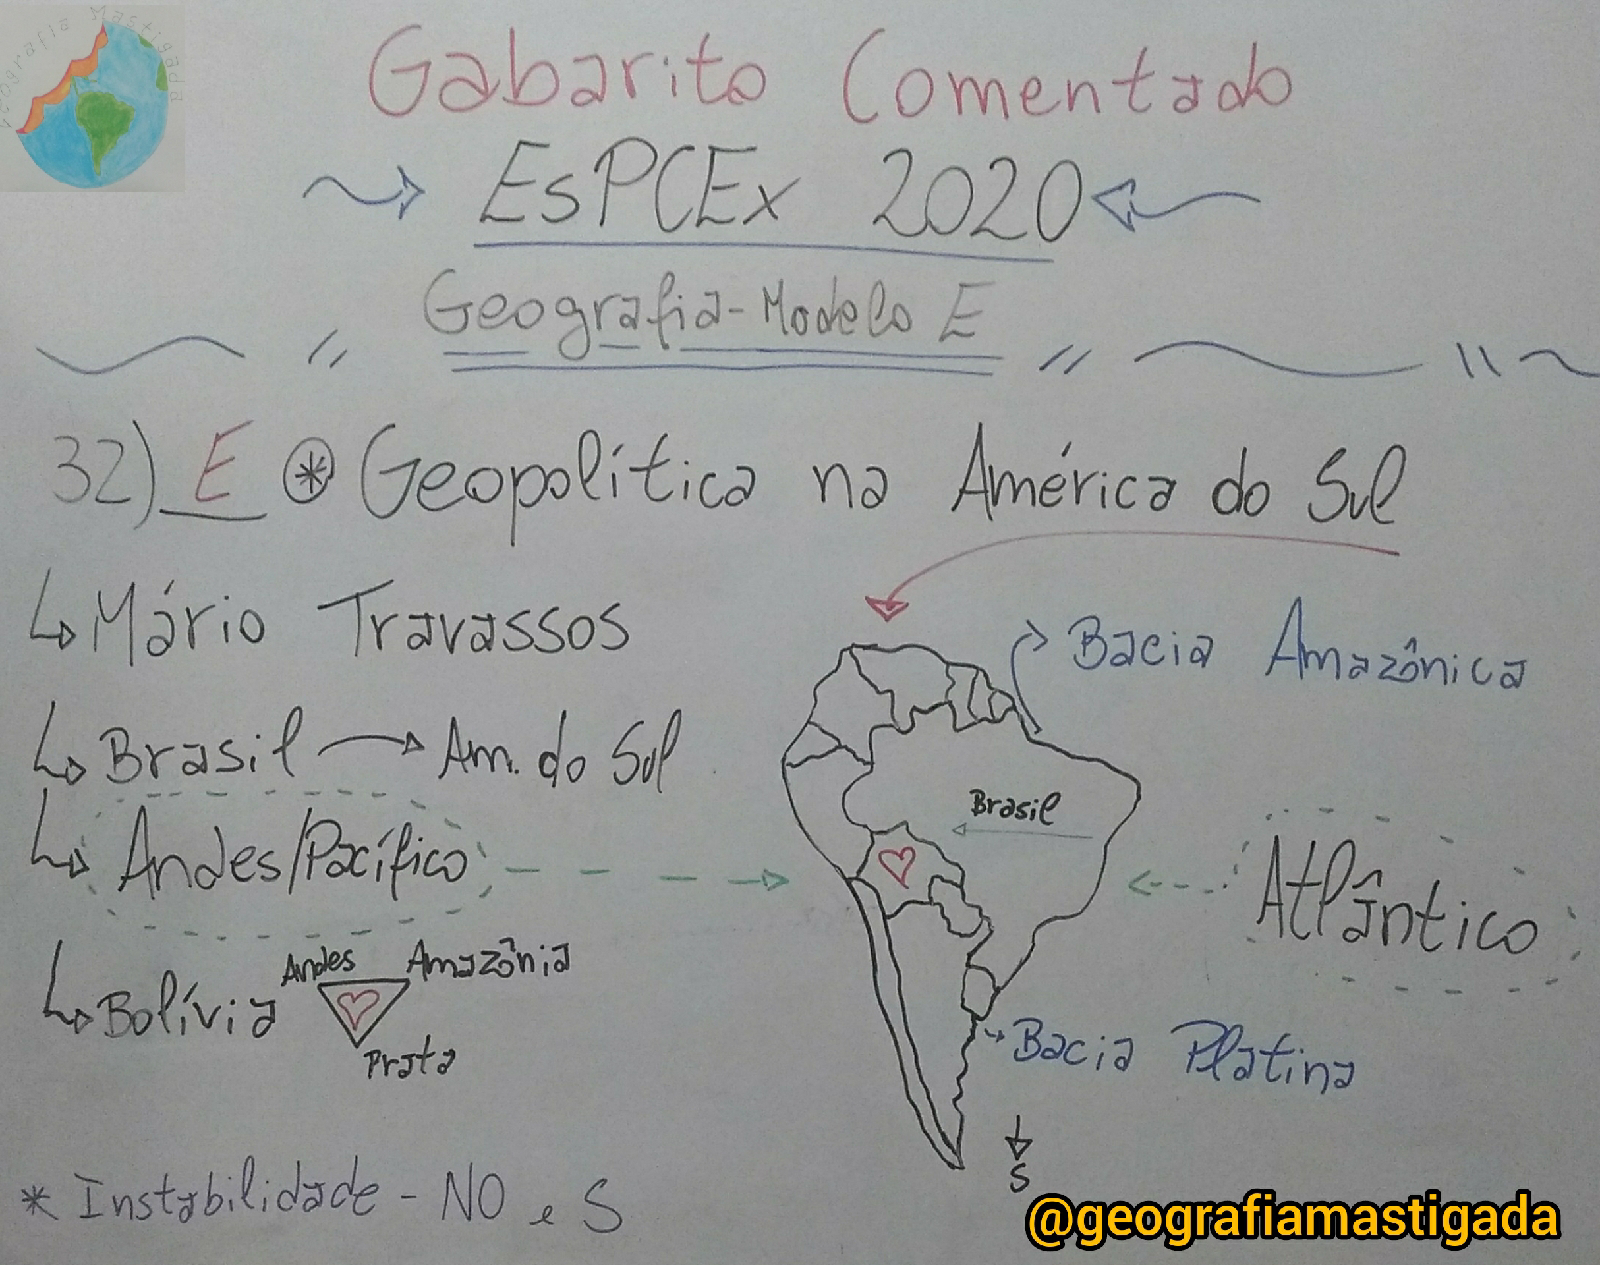 Geografia Mastigada
Gabarito Comentado
EsPCEx 2020
Geografia - Modelo E
32) E * Geopolítica na América do Sul
Mário Travassos
Bacia Amazônica
Brasil → Am. do Sul
Brasil
Andes/Pacífico
Atlântico
Andes Amazônia
Bolívia
Prata
Bacia Platina
S
* Instabilidade - NO e S
@geografiamastigada